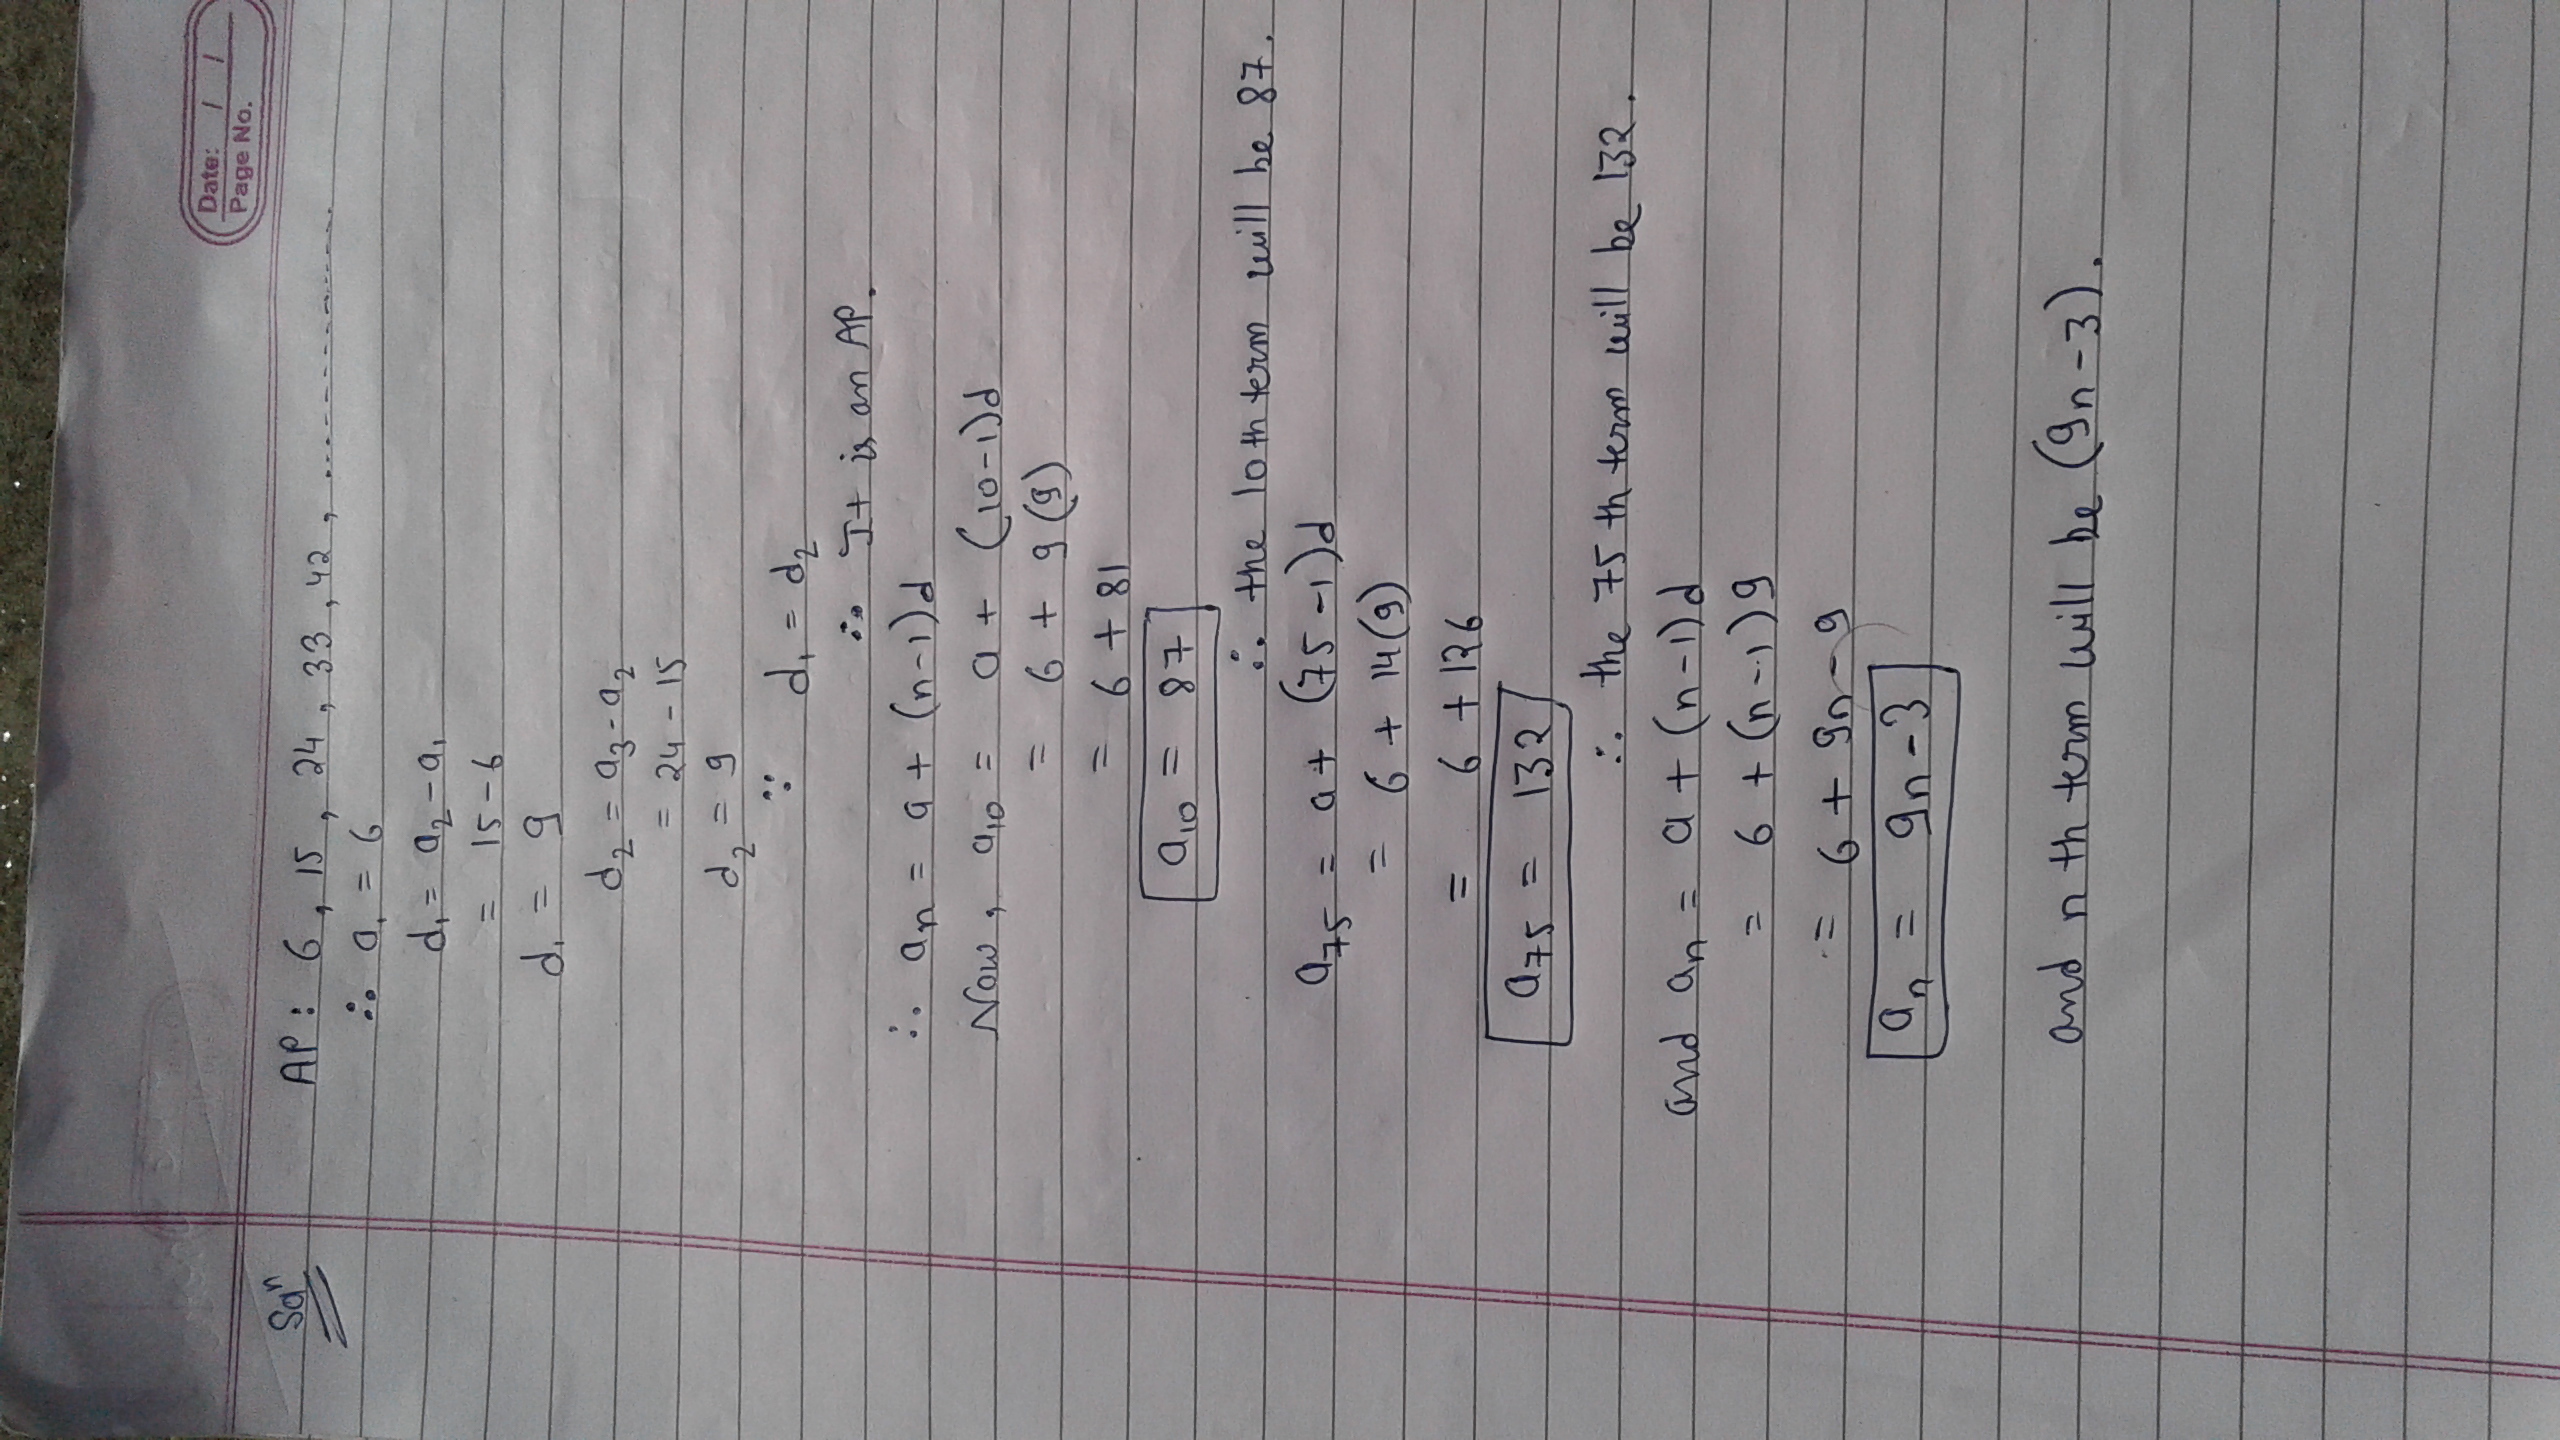 Date: / /
Page No.
Solⁿ AP : 6, 15, 24, 33, 42, ..................
∴ a₁ = 6
d₁ = a₂ - a₁
= 15 - 6
d₁ = 9
d₂ = a₃ - a₂
= 24 - 15
d₂ = 9
∵ d₁ = d₂
∴ It is an AP.
∴ aₙ = a + (n-1)d
Now, a₁₀ = a + (10-1)d
= 6 + 9(9)
= 6 + 81
a₁₀ = 87
∴ the 10th term will be 87.
a₇₅ = a + (75-1)d
= 6 + 14(9)
= 6 + 126
a₇₅ = 132
∴ the 75th term will be 132.
and aₙ = a + (n-1)d
= 6 + (n-1)9
= 6 + 9n - 9
aₙ = 9n-3
and nth term will be (9n-3).